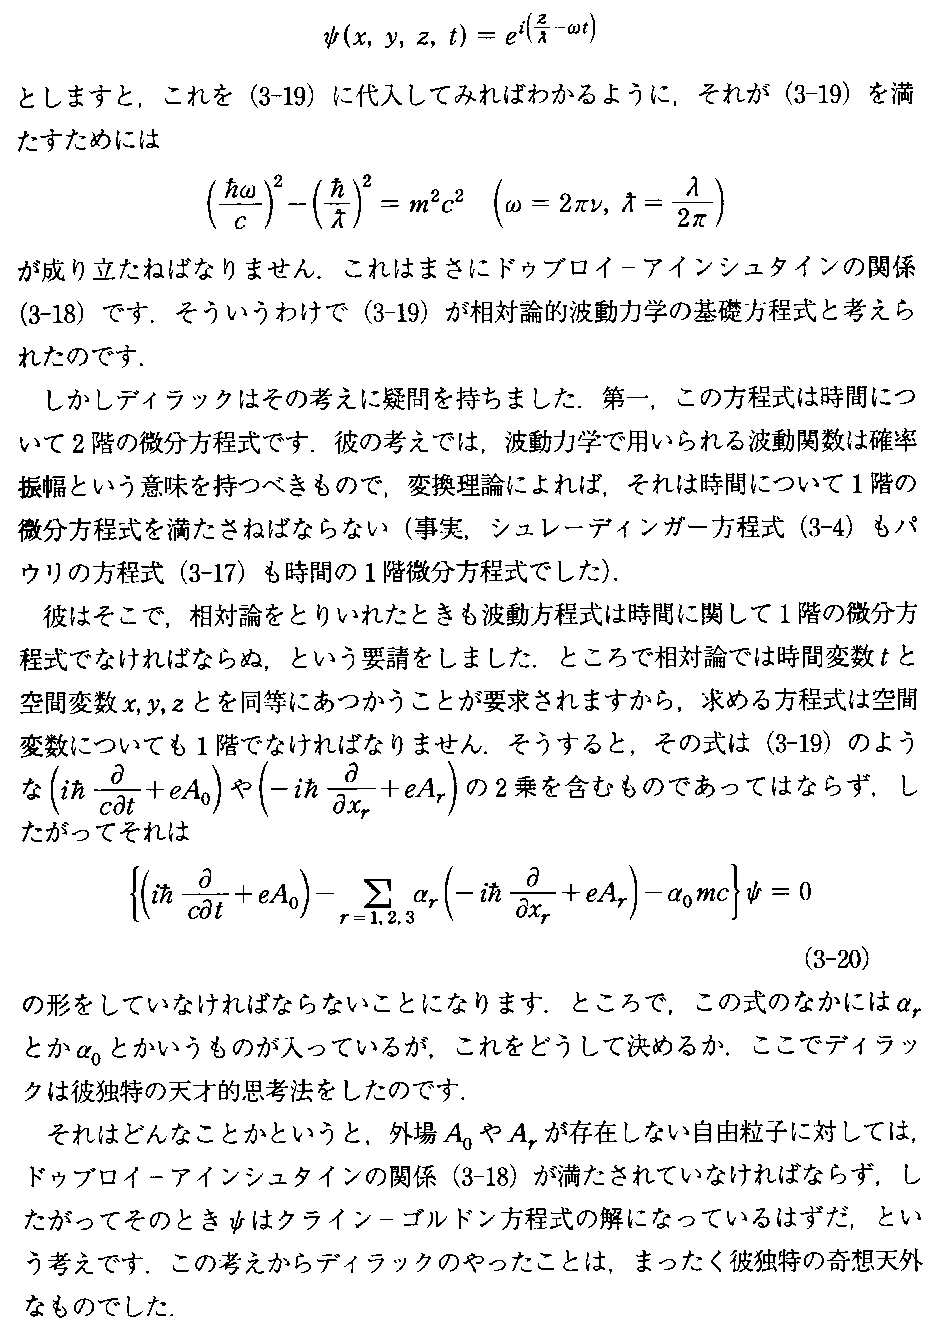 ψ(x, y, z, t) = e^{i(z/ƛ −ωt)}
としますと，これを (3-19) に代入してみればわかるように，それが (3-19) を満
たすためには
(ħω/c)² − (ħ/ƛ)² = m²c² (ω = 2πν, ƛ = λ/2π)
が成り立たねばなりません．これはまさにドゥブロイ−アインシュタインの関係
(3-18) です．そういうわけで (3-19) が相対論的波動力学の基礎方程式と考えら
れたのです．
しかしディラックはその考えに疑問を持ちました．第一，この方程式は時間につ
いて2階の微分方程式です．彼の考えでは，波動力学で用いられる波動関数は確率
振幅という意味を持つべきもので，変換理論によれば，それは時間について1階の
微分方程式を満たさねばならない（事実，シュレーディンガー方程式 (3-4) もパ
ウリの方程式 (3-17) も時間の1階微分方程式でした）．
彼はそこで，相対論をとりいれたときも波動方程式は時間に関して1階の微分方
程式でなければならぬ，という要請をしました．ところで相対論では時間変数 t と
空間変数 x, y, z とを同等にあつかうことが要求されますから，求める方程式は空間
変数についても1階でなければなりません．そうすると，その式は (3-19) のよう
な (iħ ∂/c∂t + eA₀) や (−iħ ∂/∂xᵣ + eAᵣ) の2乗を含むものであってはならず，し
たがってそれは
{(iħ ∂/c∂t + eA₀) − Σ_{r=1,2,3} αᵣ (−iħ ∂/∂xᵣ + eAᵣ) − α₀mc} ψ = 0
(3-20)
の形をしていなければならないことになります．ところで，この式のなかには αᵣ
とか α₀ とかいうものが入っているが，これをどうして決めるか．ここでディラッ
クは彼独特の天才的思考法をしたのです．
それはどんなことかというと，外場 A₀ や Aᵣ が存在しない自由粒子に対しては，
ドゥブロイ−アインシュタインの関係 (3-18) が満たされていなければならず，し
たがってそのとき ψ はクライン−ゴルドン方程式の解になっているはずだ，とい
う考えです．この考えからディラックのやったことは，まったく彼独特の奇想天外
なものでした．